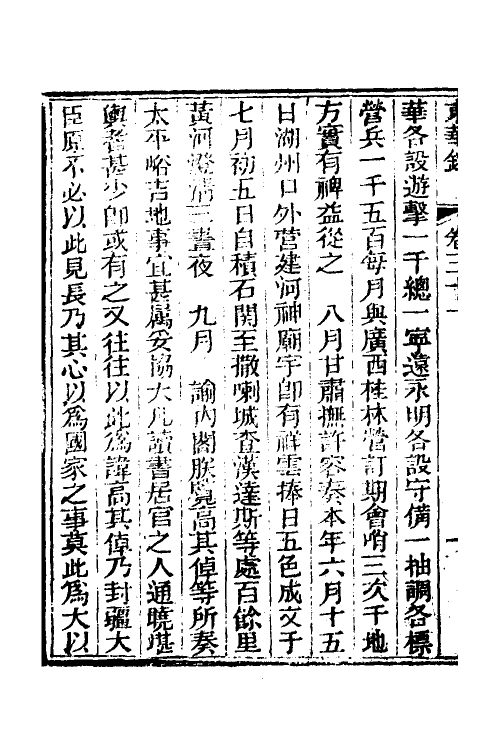 東華錄 卷三十一
華各設遊擊一千總一寧遠永明各設守備一抽調各標
營兵一千五百每月與廣西桂林營訂期會哨三次于地
方實有裨益從之　八月甘肅撫許容奏本年六月十五
日湖州口外營建河神廟宇卽有祥雲捧日五色成文于
七月初五日自積石關至撒喇城查漢達斯等處百餘里
黃河澄淸三晝夜　九月　諭內閣朕覽高其倬等所奏
太平峪吉地事宜甚屬妥協大凡讀書居官之人通曉堪
輿者甚少卽或有之又往往以此爲諱高其倬乃封疆大
臣原不必以此見長乃其心以爲國家之事莫此爲大以